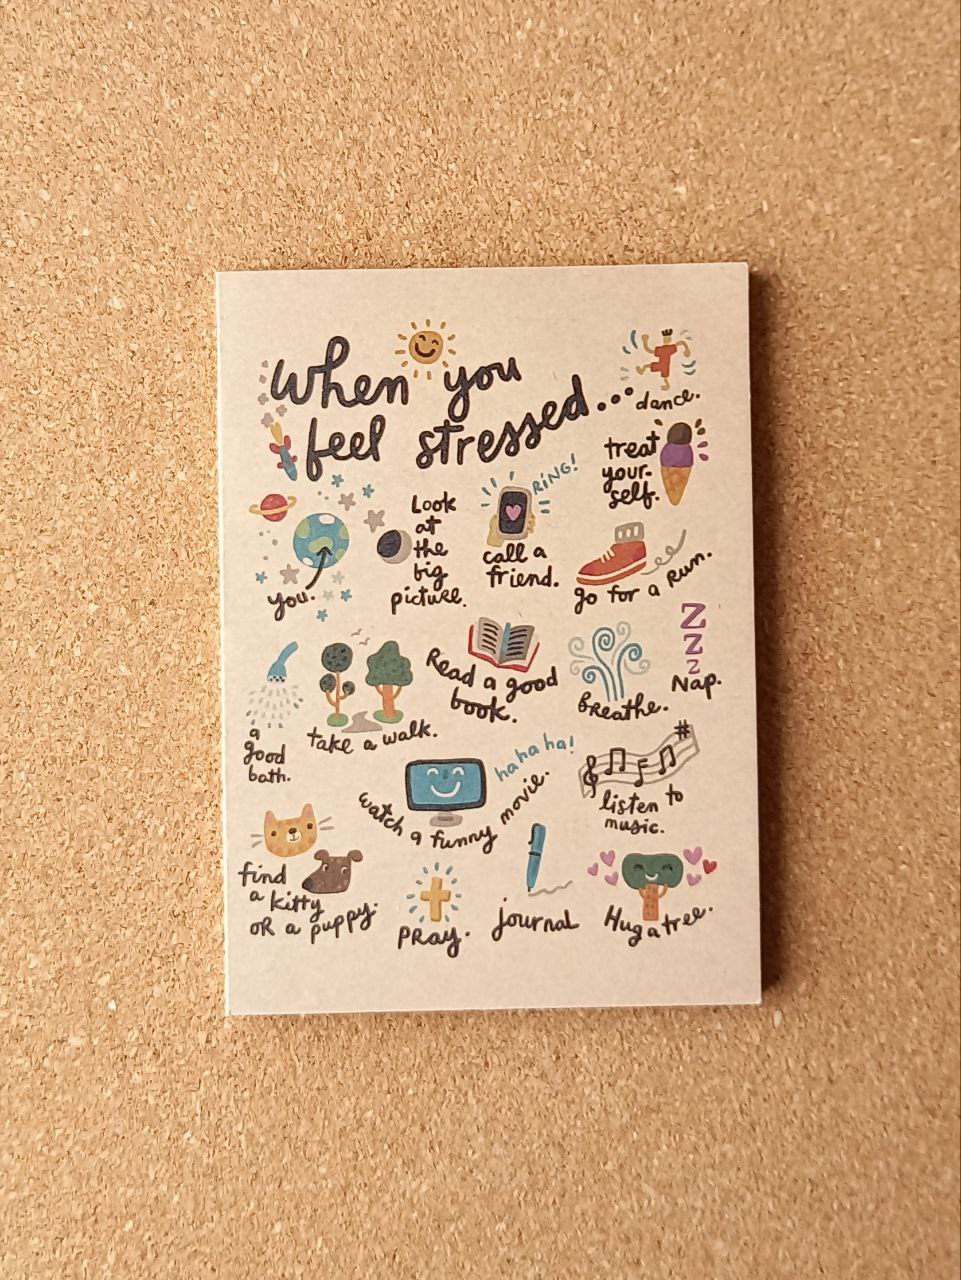 When you
feel stressed...
dance.
treat
your-
self.
you.
Look
at
the
big
picture.
RiNG!
call a
friend.
go for a run.
a
good
bath.
take a walk.
Read a good
book.
Breathe.
Z
Z
Z
Nap.
hahaha!
watch a funny movie.
listen to
music.
find
a kitty
OR a puppy.
PRay.
journal
Hug a tree.